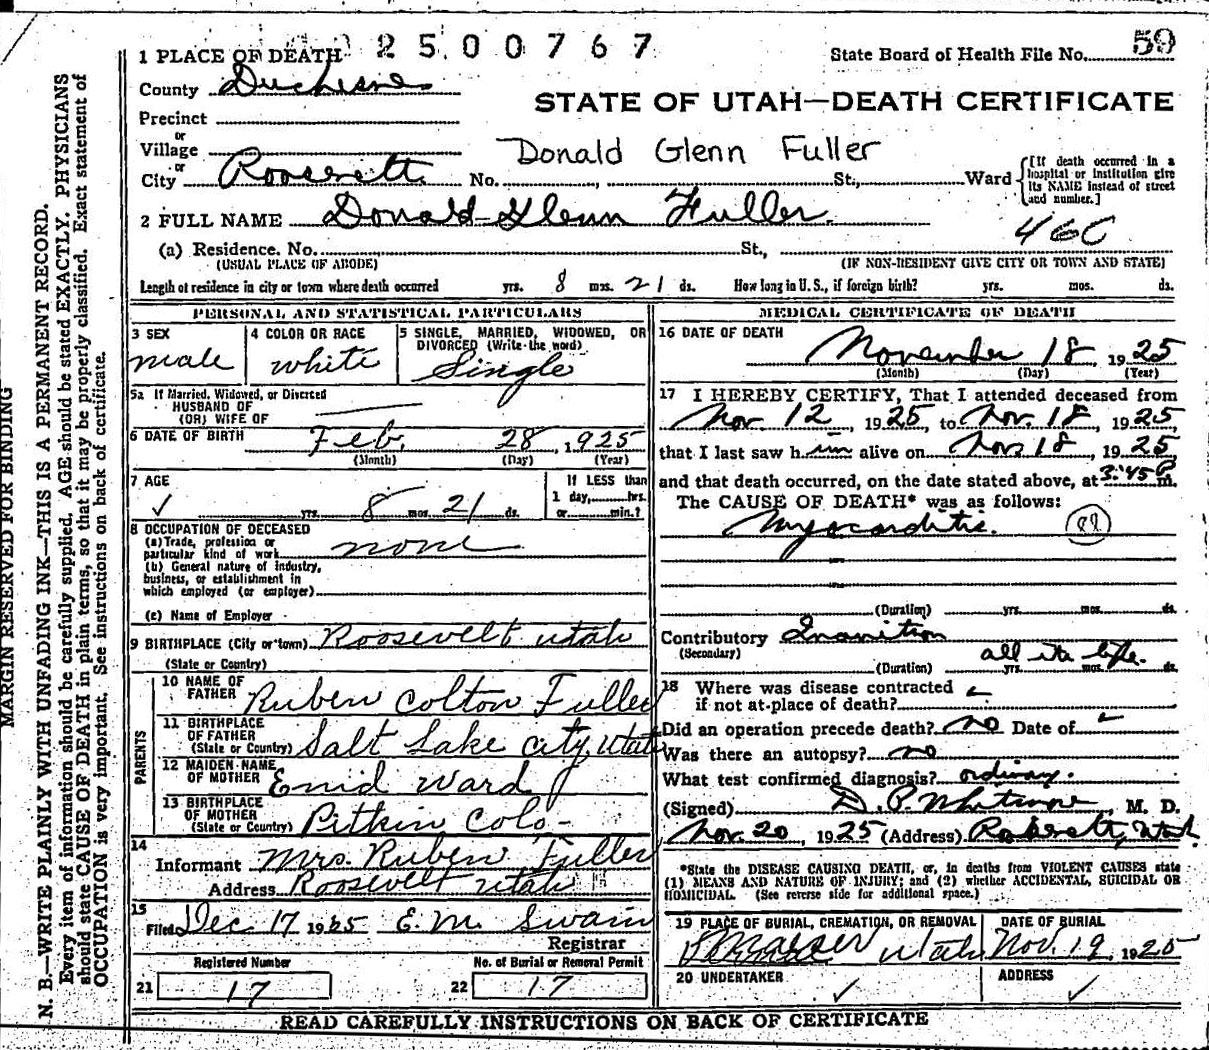 2500767
1 PLACE OF DEATH
State Board of Health File No. 59
County Duchesne
STATE OF UTAH—DEATH CERTIFICATE
Precinct
or
Village
Donald Glenn Fuller
or
City Roosevelt No. , St., Ward
[If death occurred in a hospital or institution give its NAME instead of street and number.]
2 FULL NAME Donald Glenn Fuller
460
(a) Residence. No. St.,
(USUAL PLACE OF ABODE) (IF NON-RESIDENT GIVE CITY OR TOWN AND STATE)
Length of residence in city or town where death occurred yrs. 8 mos. 21 ds. How long in U. S., if foreign birth? yrs. mos. ds.
PERSONAL AND STATISTICAL PARTICULARS
3 SEX
male
4 COLOR OR RACE
white
5 SINGLE, MARRIED, WIDOWED, OR
DIVORCED (Write the word)
Single
5a If Married, Widowed, or Divorced
HUSBAND OF
(OR) WIFE OF
6 DATE OF BIRTH Feb. 28, 1925
(Month) (Day) (Year)
7 AGE
yrs. 8 mos. 21 ds.
If LESS than
1 day, hrs.
or min.?
8 OCCUPATION OF DECEASED
(a) Trade, profession or
particular kind of work none
(b) General nature of industry,
business, or establishment in
which employed (or employer)
(c) Name of Employer
9 BIRTHPLACE (City or town) Roosevelt Utah
(State or Country)
PARENTS
10 NAME OF
FATHER Ruben Colton Fuller
11 BIRTHPLACE
OF FATHER
(State or Country) Salt Lake City, Utah
12 MAIDEN NAME
OF MOTHER Enid Ward
13 BIRTHPLACE
OF MOTHER
(State or Country) Pitkin Colo-
14
Informant Mrs. Ruben Fuller
Address Roosevelt Utah
15
Filed Dec 17 1925 E. M. Swain
Registrar
Registered Number
21 17
No. of Burial or Removal Permit
22 17
MEDICAL CERTIFICATE OF DEATH
16 DATE OF DEATH
November 18, 1925
(Month) (Day) (Year)
17 I HEREBY CERTIFY, That I attended deceased from
Nov. 12, 1925, to Nov. 18, 1925
that I last saw h im alive on Nov 18, 1925
and that death occurred, on the date stated above, at 3:45 P m.
The CAUSE OF DEATH* was as follows:
Myocarditis.
(Duration) yrs. mos. ds.
Contributory Inanition
(Secondary)
all its life.
(Duration) yrs. mos. ds.
18 Where was disease contracted
if not at place of death?
Did an operation precede death? no Date of
Was there an autopsy? no
What test confirmed diagnosis? ordinary.
(Signed) D. P. Whitmore, M. D.
Nov. 20, 1925 (Address) Roosevelt, Utah.
*State the DISEASE CAUSING DEATH, or, in deaths from VIOLENT CAUSES state
(1) MEANS AND NATURE OF INJURY; and (2) whether ACCIDENTAL, SUICIDAL OR
HOMICIDAL. (See reverse side for additional space.)
19 PLACE OF BURIAL, CREMATION, OR REMOVAL
Maeser Utah
DATE OF BURIAL
Nov. 19, 1925
20 UNDERTAKER
ADDRESS
READ CAREFULLY INSTRUCTIONS ON BACK OF CERTIFICATE
MARGIN RESERVED FOR BINDING
N. B.—WRITE PLAINLY WITH UNFADING INK—THIS IS A PERMANENT RECORD.
Every item of information should be carefully supplied. AGE should be stated EXACTLY. PHYSICIANS
should state CAUSE OF DEATH in plain terms, so that it may be properly classified. Exact statement of
OCCUPATION is very important. See instructions on back of certificate.